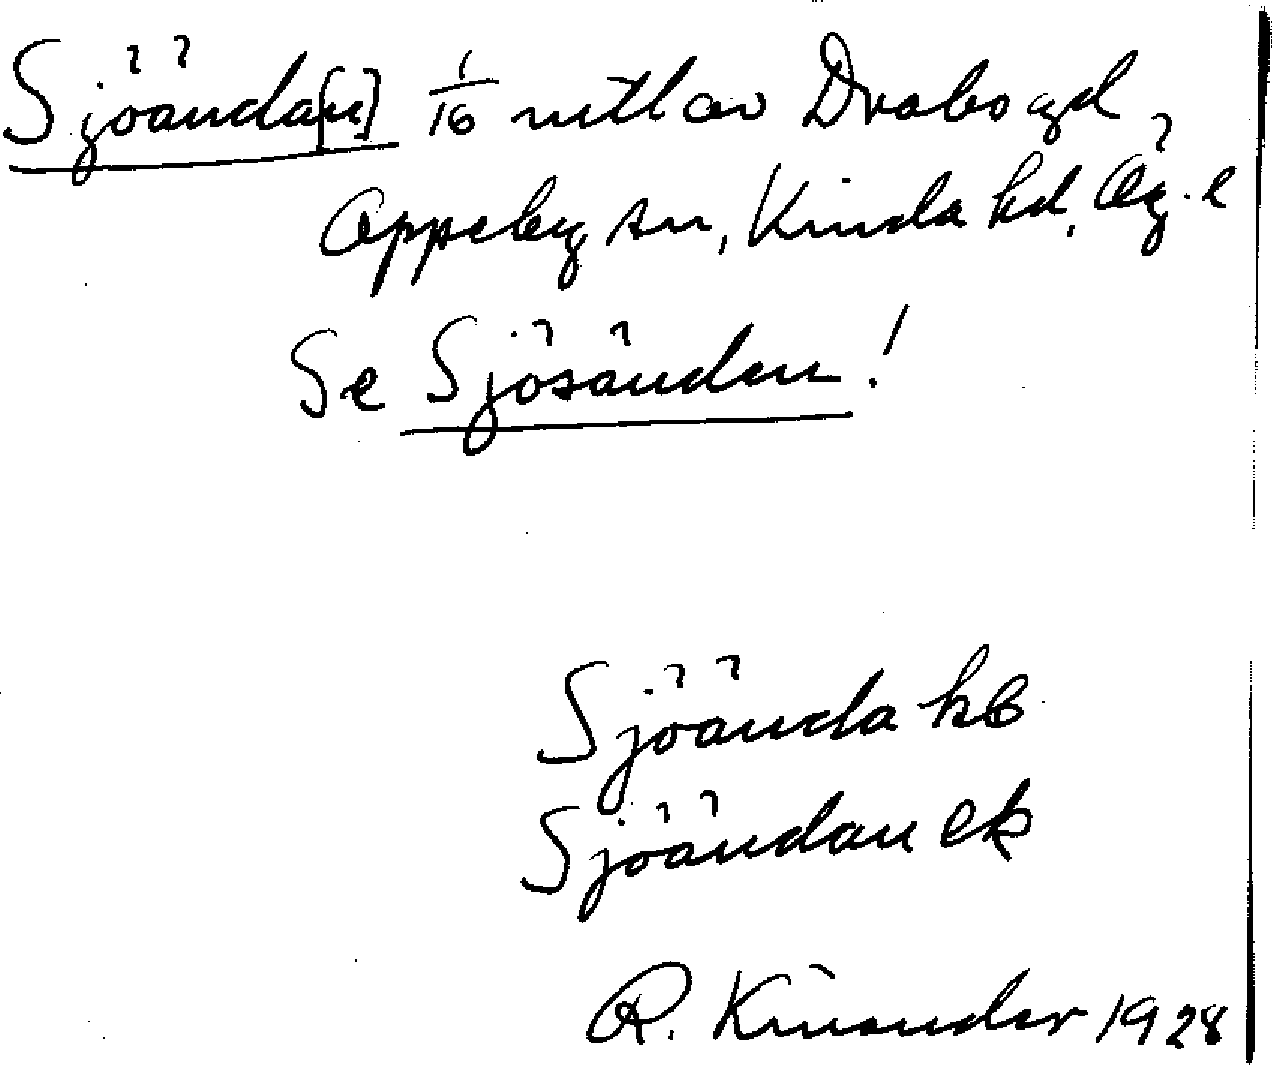 Sjöända[n] 1/16 mtl av Drabo gd
Oppeby sn, Kinda hd, Ög. l
Se Sjösänden!
Sjöända kb
Sjöändan ek
R. Kinander 1928